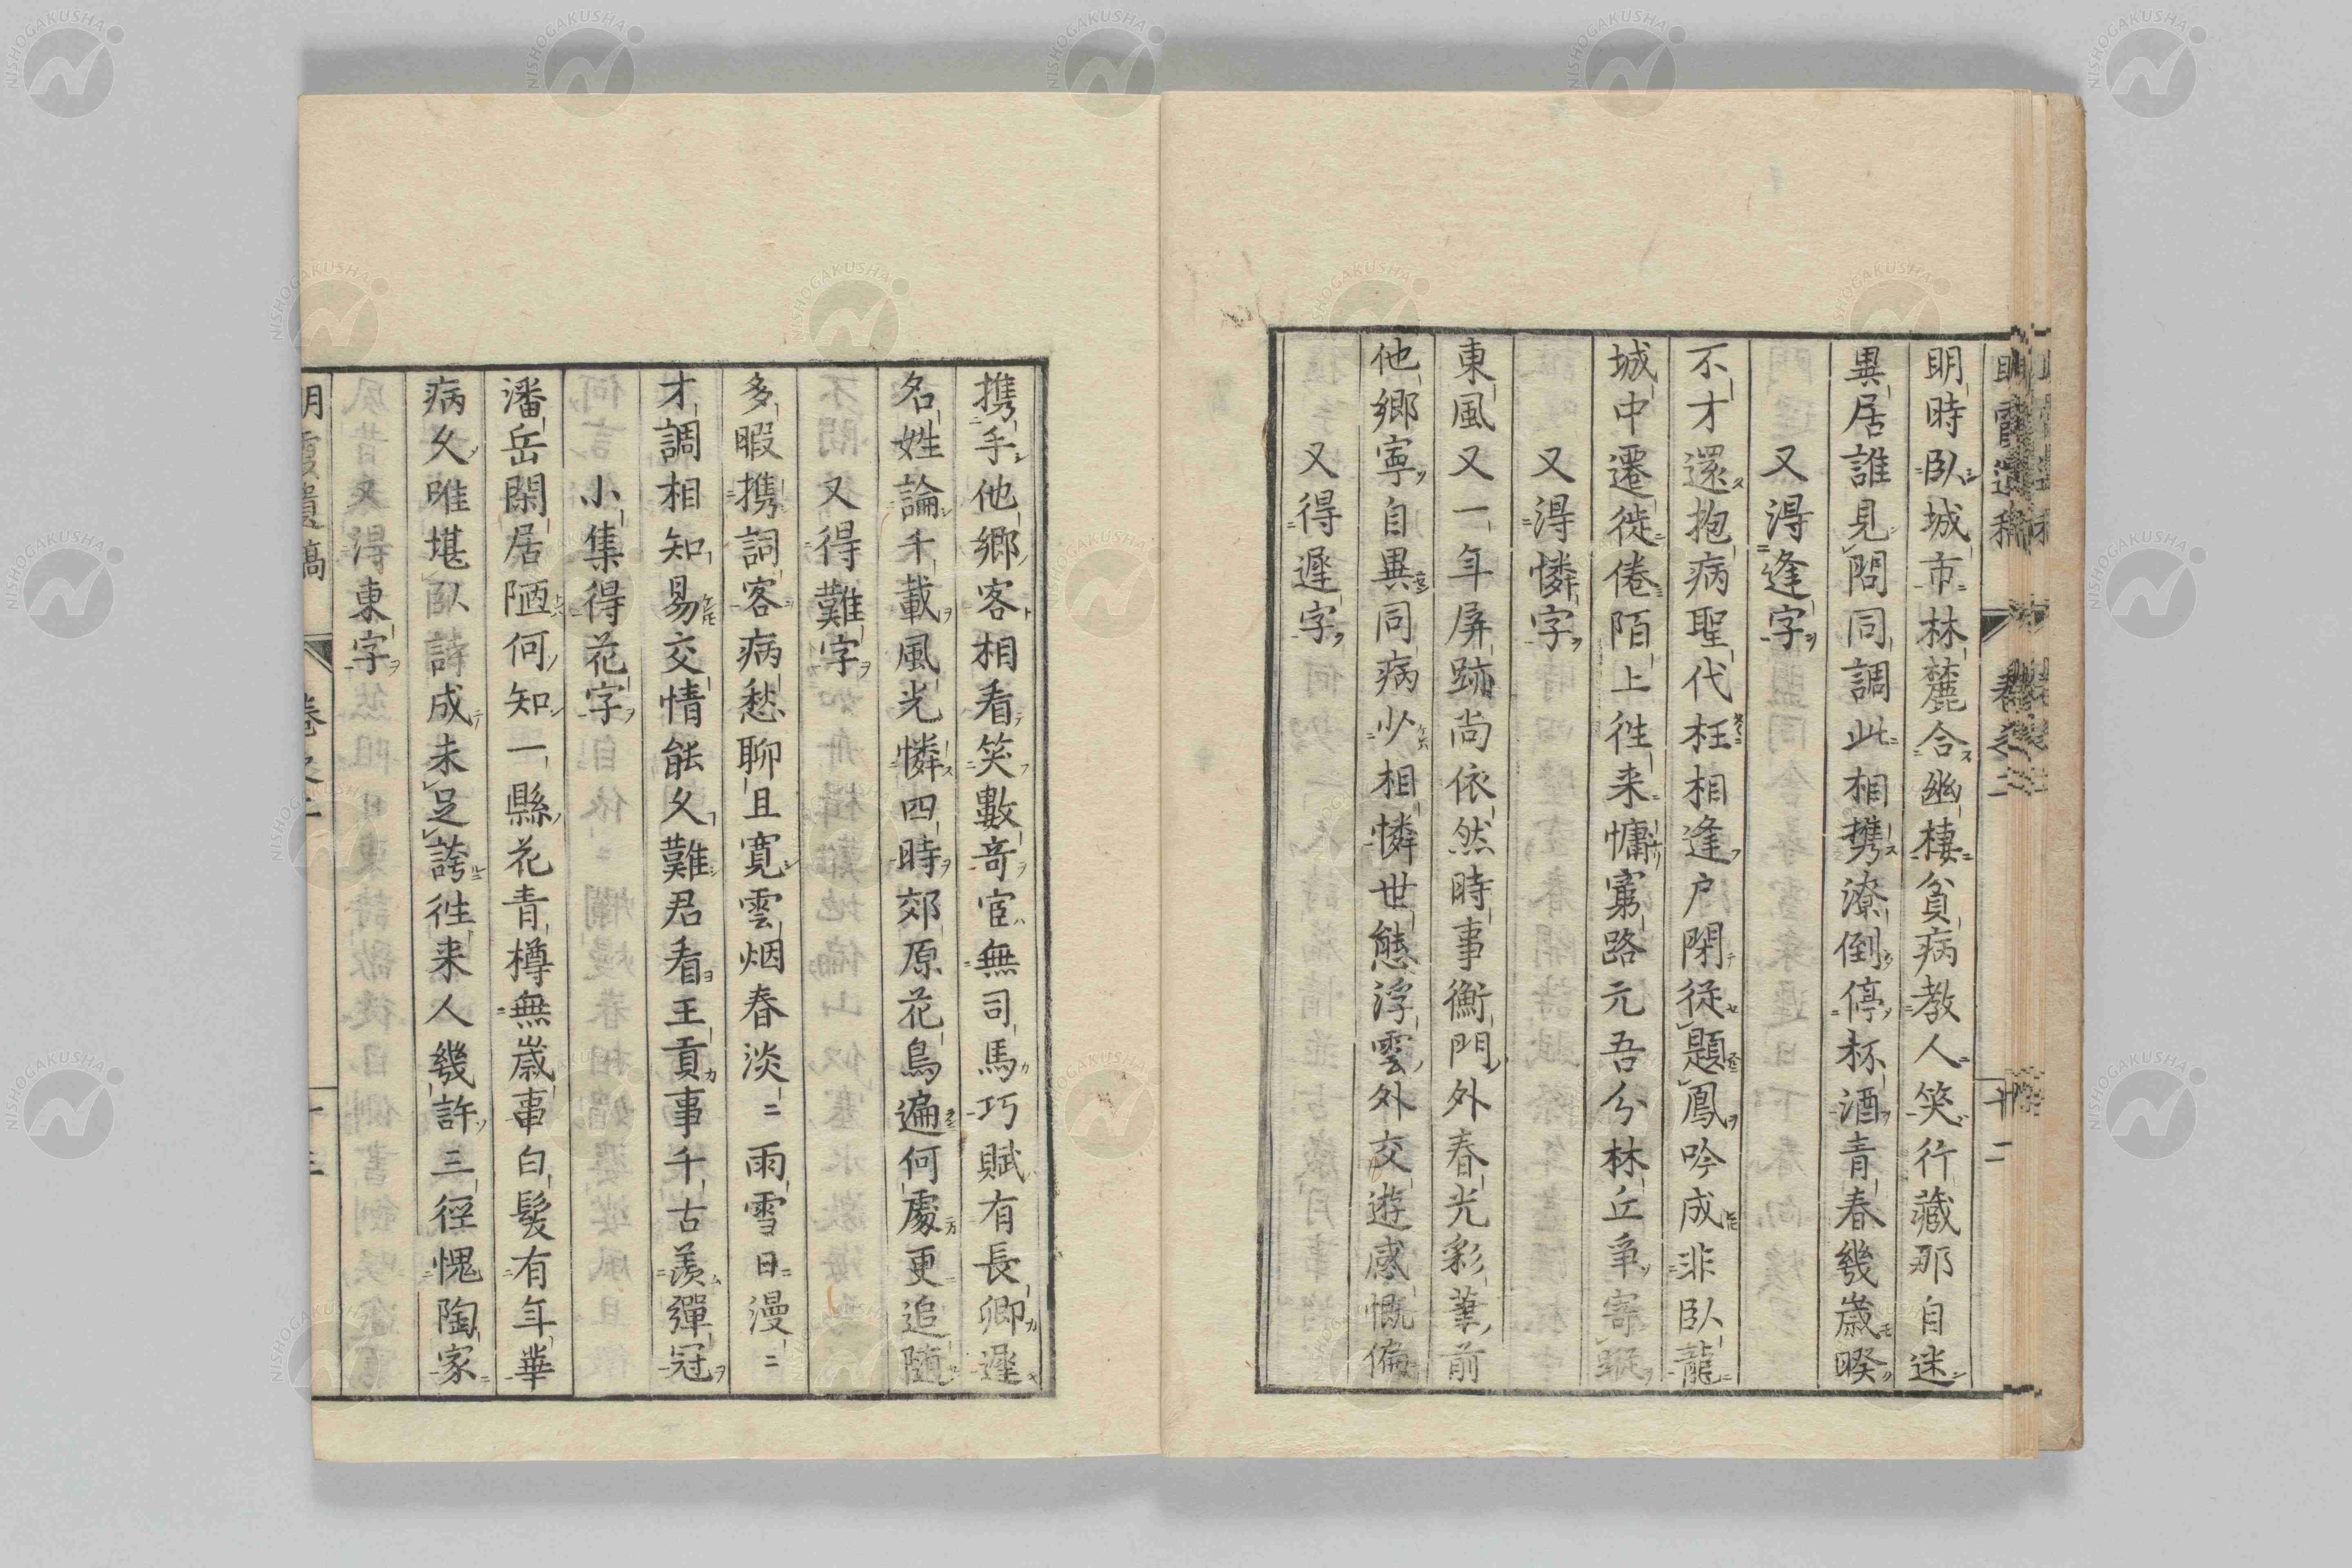 明時臥城市林麓合幽棲貧病教人笑行藏那自迷
異居誰見問同調此相携潦倒停杯酒青春幾歲暌
又得逢字
不才還抱病聖代枉相逢戶閉從題鳳吟成非臥龍
城中遷徙倦陌上往来慵窮路元吾分林丘爭寄蹤
又得憐字
東風又一年屏跡尚依然時事衡門外春光彩筆前
他鄉寧自異同病少相憐世態浮雲外交遊感慨偏
又得遲字
携手他鄉客相看笑數奇宦無司馬巧賦有長卿遲
名姓論千載風光憐四時郊原花鳥遍何處更追隨
又得難字
多暇携詞客病愁聊且寬雲烟春淡〻雨雪日漫〻
才調相知易交情能久難君看王貢事千古羨彈冠
小集得花字
潘岳閑居陋何知一縣花青樽無歲事白髮有年華
病久唯堪臥詩成未足誇往来人幾許三徑愧陶家
又得東字
明霞遺稿 卷之二 十三